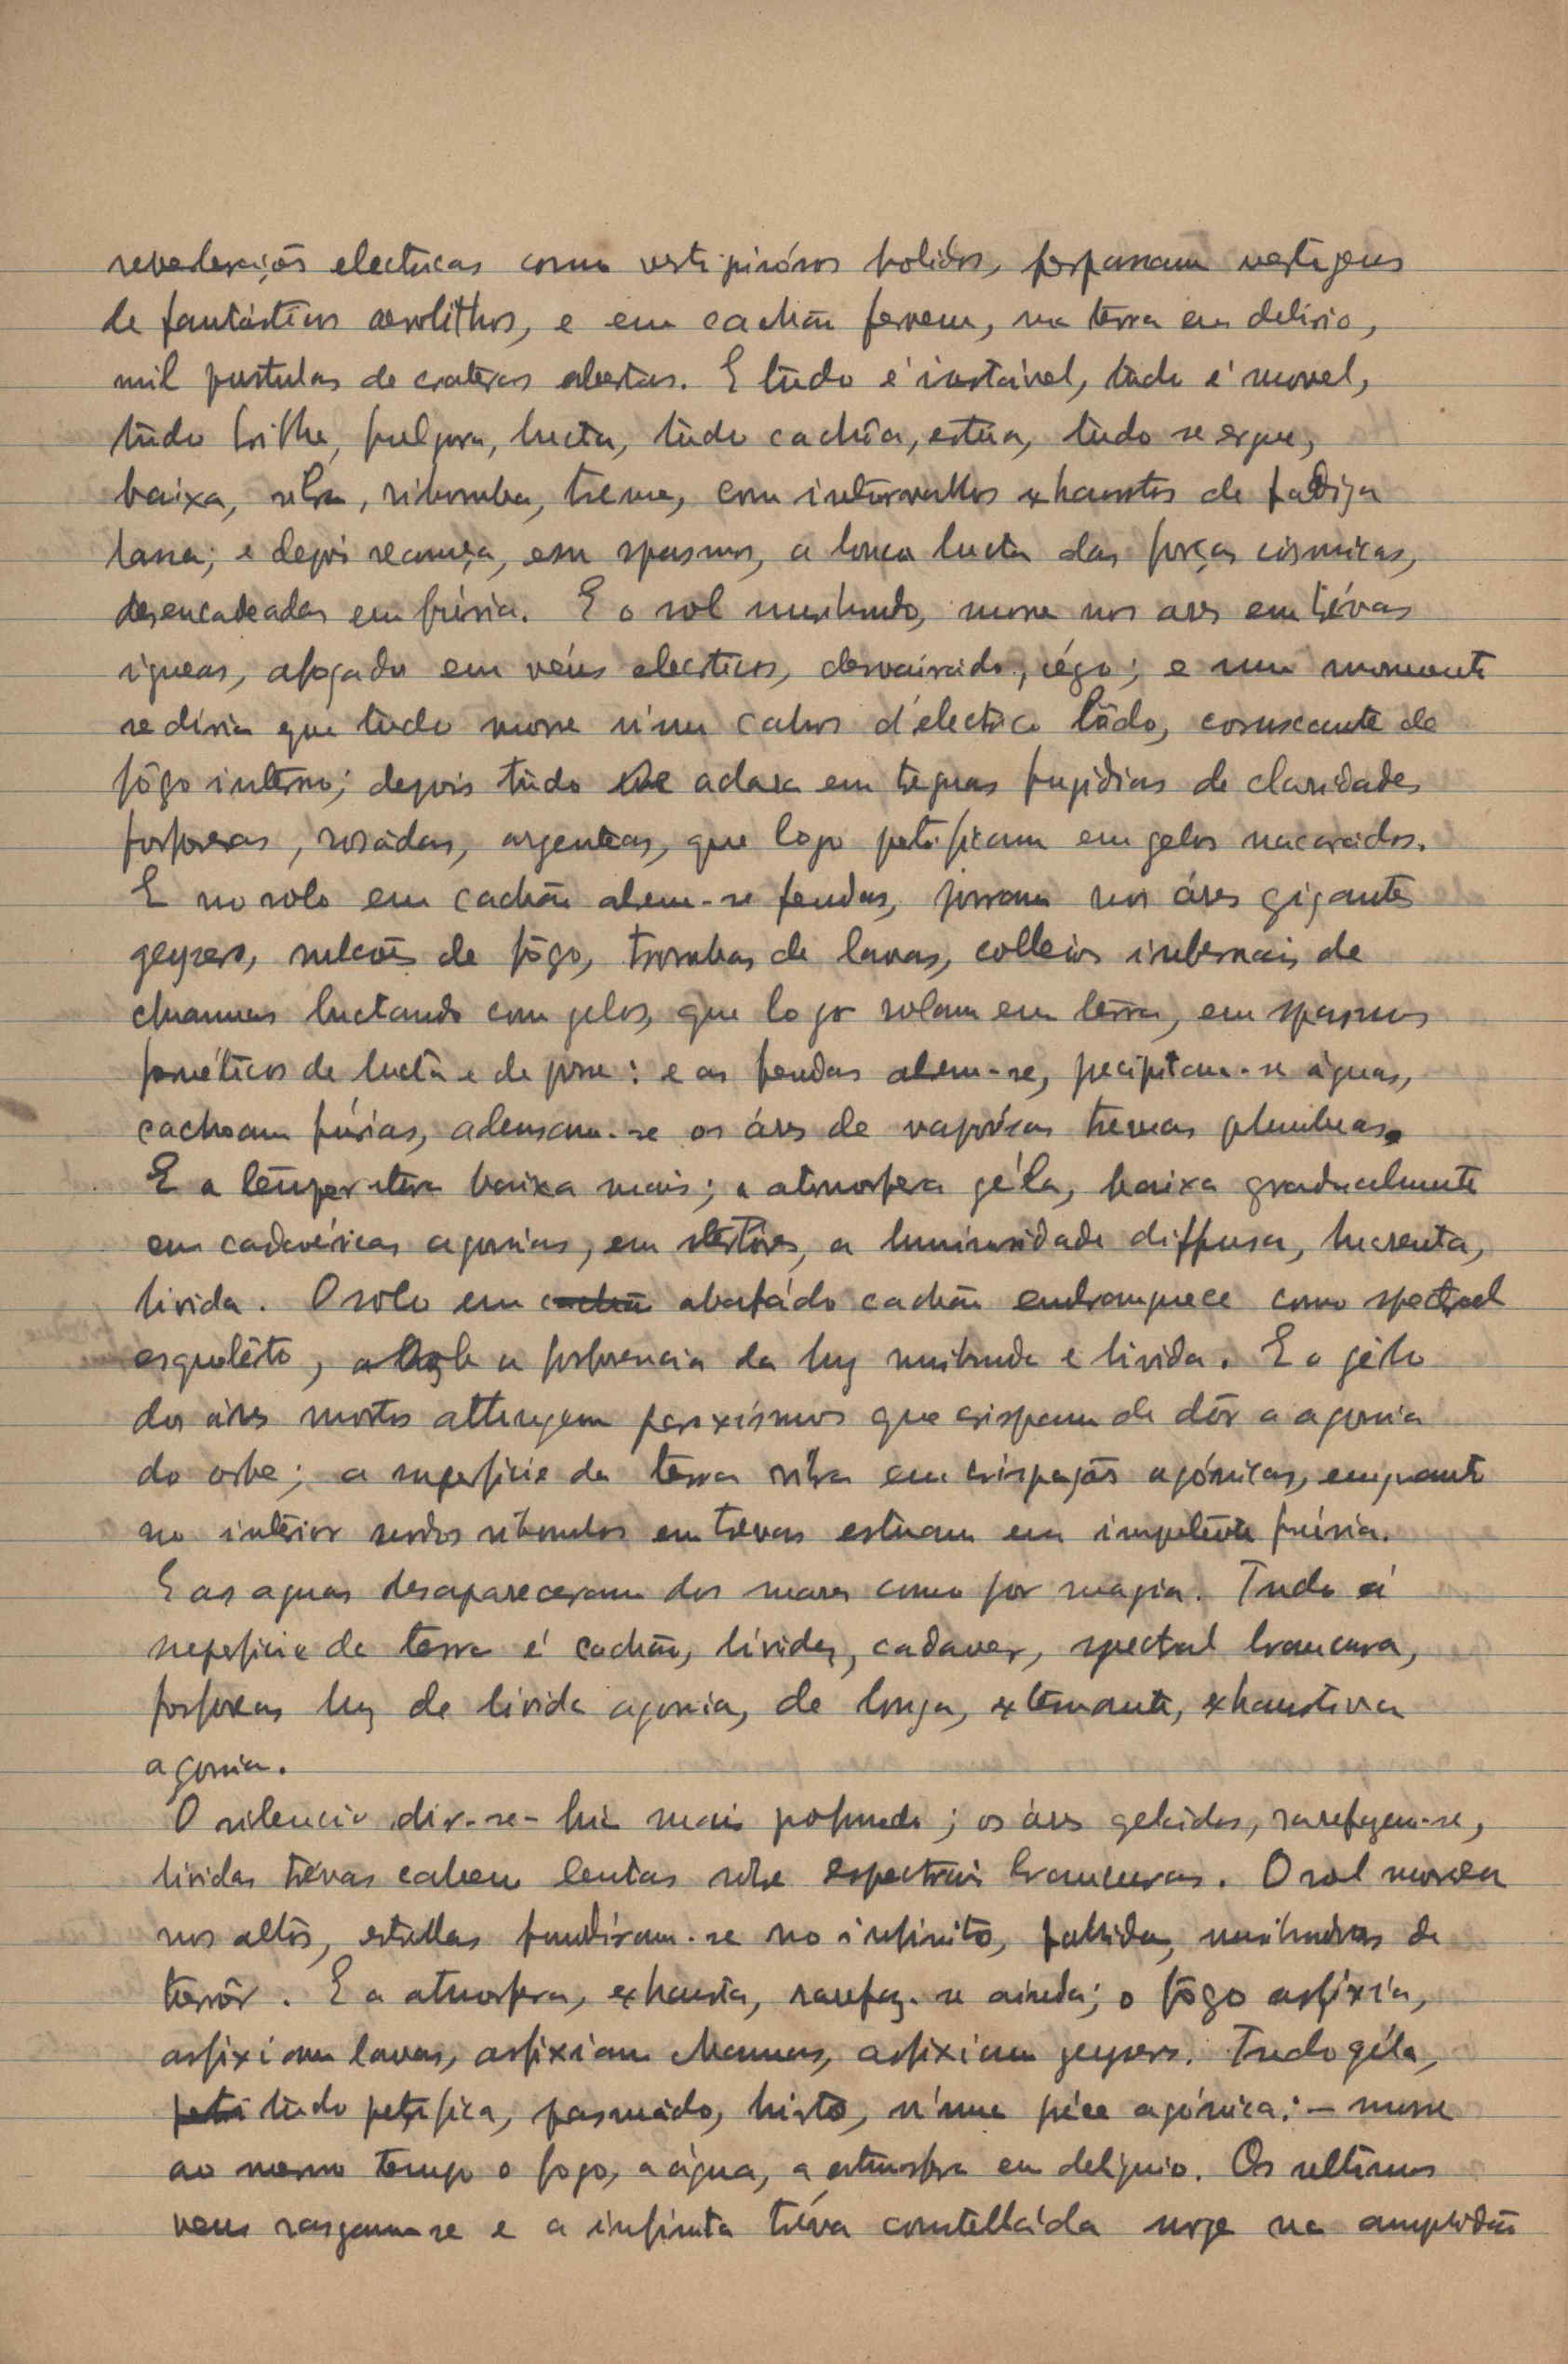 electricas como vertiginósos bolidos, perpassam vertigens
de fantásticos aerolithos, e em cachão fervem, na terra em delirio,
mil pustulas de crateras abertas. E tudo é instável, tudo é movel,
tudo brilha, fulgura, lucta, tudo cachôa, estúa, tudo se ergue,
baixa, silva, ribomba, treme, com intervallos exhaustos de fadiga
lassa; e depois recomeça, em spasmos, a louca lucta das forças cósmicas,
desencadeadas em fúria. E o sol moribundo, morre nos ares em trévas
igneas, afogado em véus electricos, desvairado, cégo; e um momento
se diria que tudo morre n'um cahos d'electrico lôdo, coruscante de
fôgo interno; depois tudo se aclara em treguas fugidias de claridades
forforeas, rosádas, argenteas, que logo petrificam em gelos nacarados.
E no solo em cachão abrem-se fendas, jorram nos áres gigantes
geysers, vulcões de fôgo, trombas de lavas, colleios infernais de
chammas luctando com gelos, que logo rolam em terra, em spasmos
frenéticos de lucta e de goso: e as fendas abrem-se, precipitam-se águas,
cachoam fúrias, adensam-se os áres de vapórosas trevas plumbeas.
E a temperatura baixa mais; a atmosfera géla, baixa gradualmente
em cadavéricas agonias, em stertôres, a luminosidade diffusa, lucrenta,
livida. O solo em cachão abafádo cachão embranquece como spectral
esquelêto, a forforencia da luz moribunda e livida. E o gélo
dos áres mortos attingem paroxismos que crispam de dôr a agonia
do orbe; a superficie da terra silva em crispações agónicas, emquanto
no intérior surdos ribombos em trevas estuam em impotente fúria.
E as aguas desapareceram dos mares como por magia. Tudo á
superficie da terra é cachão, lividez, cadaver, spectral brancura,
forforeas luz de livida agonia, de longa, extenuante, exhaustiva
agonia.
O silencio dir-se-hia mais profundo; os áres gelados, rarefazem-se,
lividas trévas cahem lentas sobre espectrais brancuras. O sol morreu
nos altos, estrellas fundiram-se no infinito, pallidas, moribundas de
terrôr. E a atmosfera, exhausta, rarefaz-se ainda; o fôgo asfixía,
asfixiam lavas, asfixiam chammas, asfixiam geysers. Tudo géla,
petri tudo petrifica, pasmádo, hirto, n'uma agónica: – morre
ao mesmo tempo o fogo, a água, a atmosfera em deliquio. Os ultimos
veus rasgam-se e a infinita tréva constelláda surge na amplidão